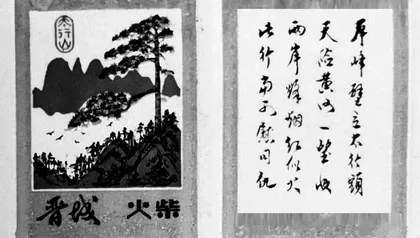 太行山
晋城 火柴
群峰壁立太行頭
天险黄河一望收
两岸烽烟红似火
此行當可慰同仇